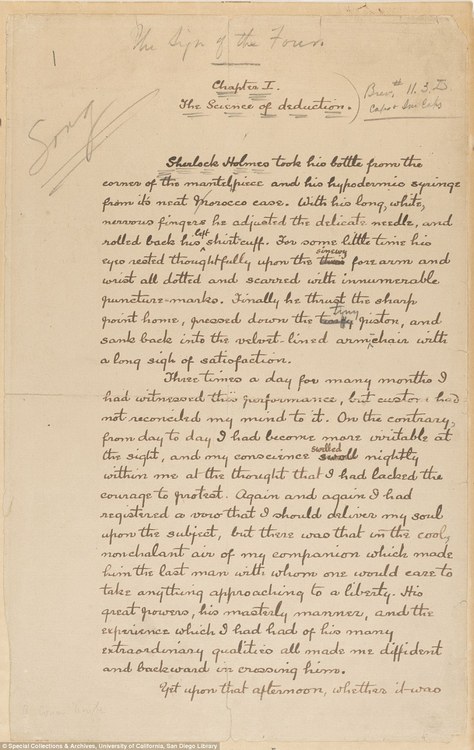 The Sign of the Four
1
Chapter I.
The Science of deduction.
Brev. 11. 3.
Song
Sherlock Holmes took his bottle from the
corner of the mantelpiece and his hypodermic syringe
from its neat Morocco case. With his long, white,
nervous fingers he adjusted the delicate needle, and
rolled back his left shirtcuff. For some little time his
eyes rested thoughtfully upon the sinewy forearm and
wrist all dotted and scarred with innumerable
puncture-marks. Finally he thrust the sharp
point home, pressed down the tiny piston, and
sank back into the velvet-lined armchair with
a long sigh of satisfaction.
Three times a day for many months I
had witnessed this performance, but custom had
not reconciled my mind to it. On the contrary,
from day to day I had become more irritable at
the sight, and my conscience swelled nightly
within me at the thought that I had lacked the
courage to protest. Again and again I had
registered a vow that I should deliver my soul
upon the subject, but there was that in the cool,
nonchalant air of my companion which made
him the last man with whom one would care to
take anything approaching to a liberty. His
great powers, his masterly manner, and the
experience which I had had of his many
extraordinary qualities all made me diffident
and backward in crossing him.
Yet upon that afternoon, whether it was
© Special Collections & Archives, University of California, San Diego Library